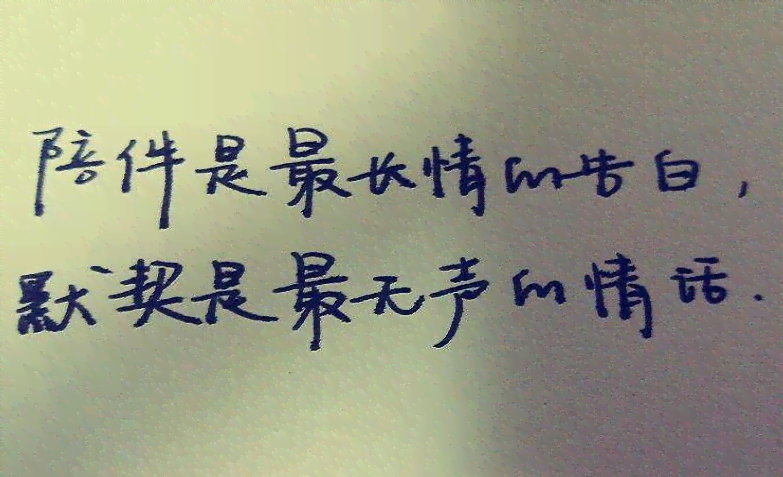 陪件是最长情的告白，
默契是最无声的情话.